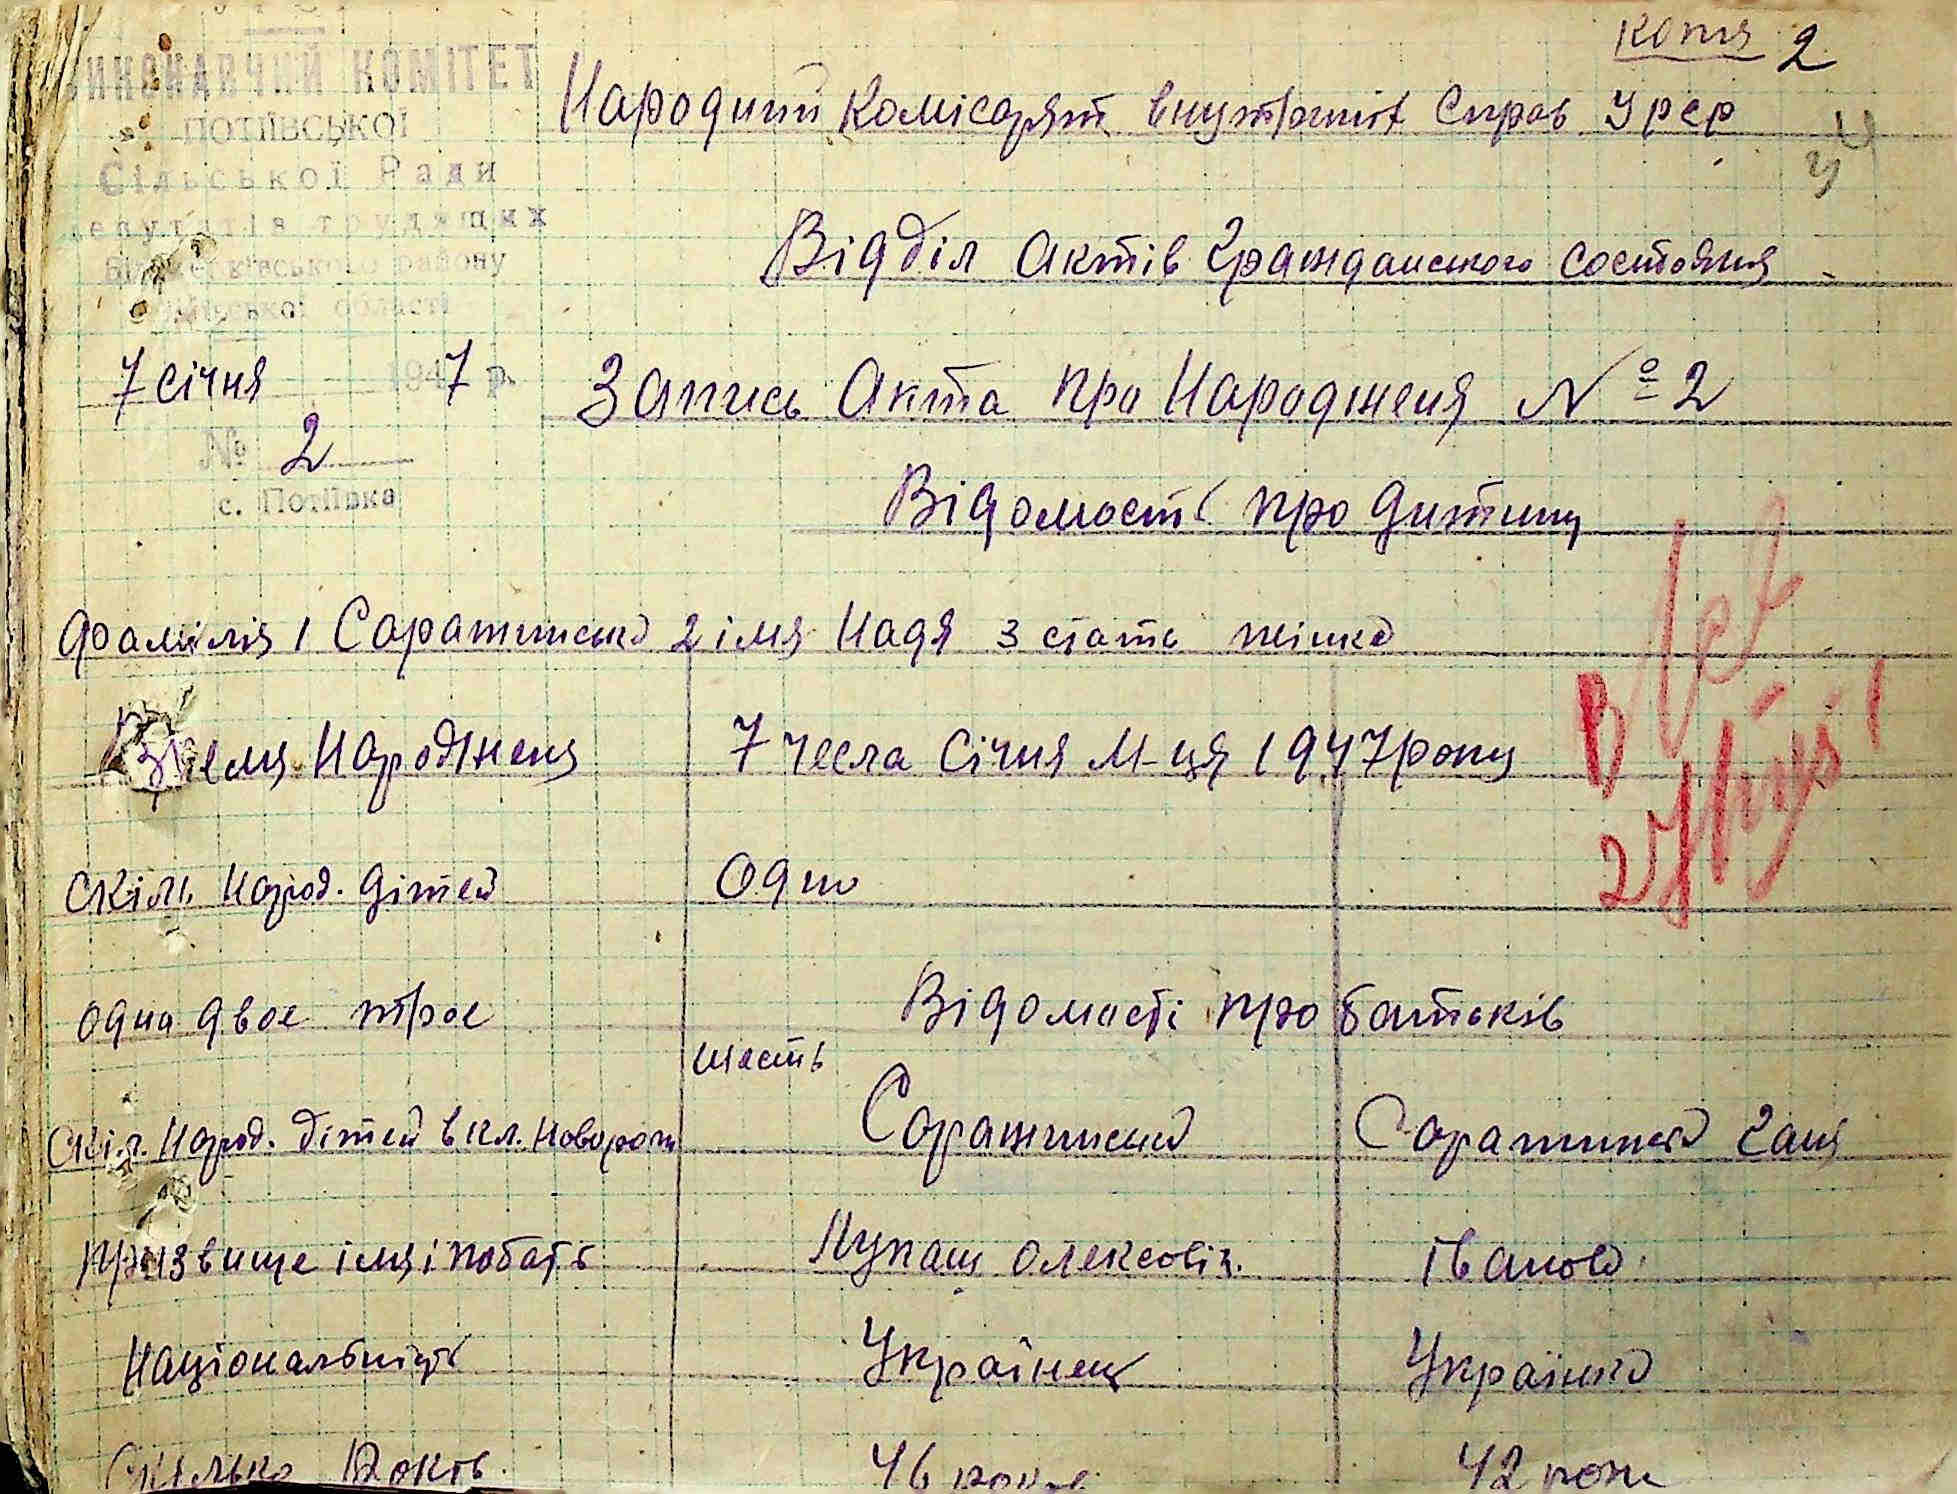 копия 2
ВИКОНАВЧИЙ КОМІТЕТ
ПОТІЇВСЬКОЇ
Сільської Ради
депутатів трудящих
району
області
7 січня 1947 р.
№ 2
с. Потіївка
Народний Комісаріят внутрішніх Справ Урср
Відділ Актів Гражданського состояния
Запись Акта про Народженя № 2
Відомості про дитину
Фамілія 1 Саратинська 2 імя Надя 3 стать жінка
Время Народженя 7 чесла Січня М-ця 1947 року
Скіль Народ. дітей Одно
одна двое трое Відомості про батьків
шесть
Скіл. Народ. дітей вкл. Новорож Саратинський Саратинська Ганя
призвище імя і побать Лукаш Олексовіч. Іванова
Національність Українец Українка
Скілько Років 46 років 42 роки